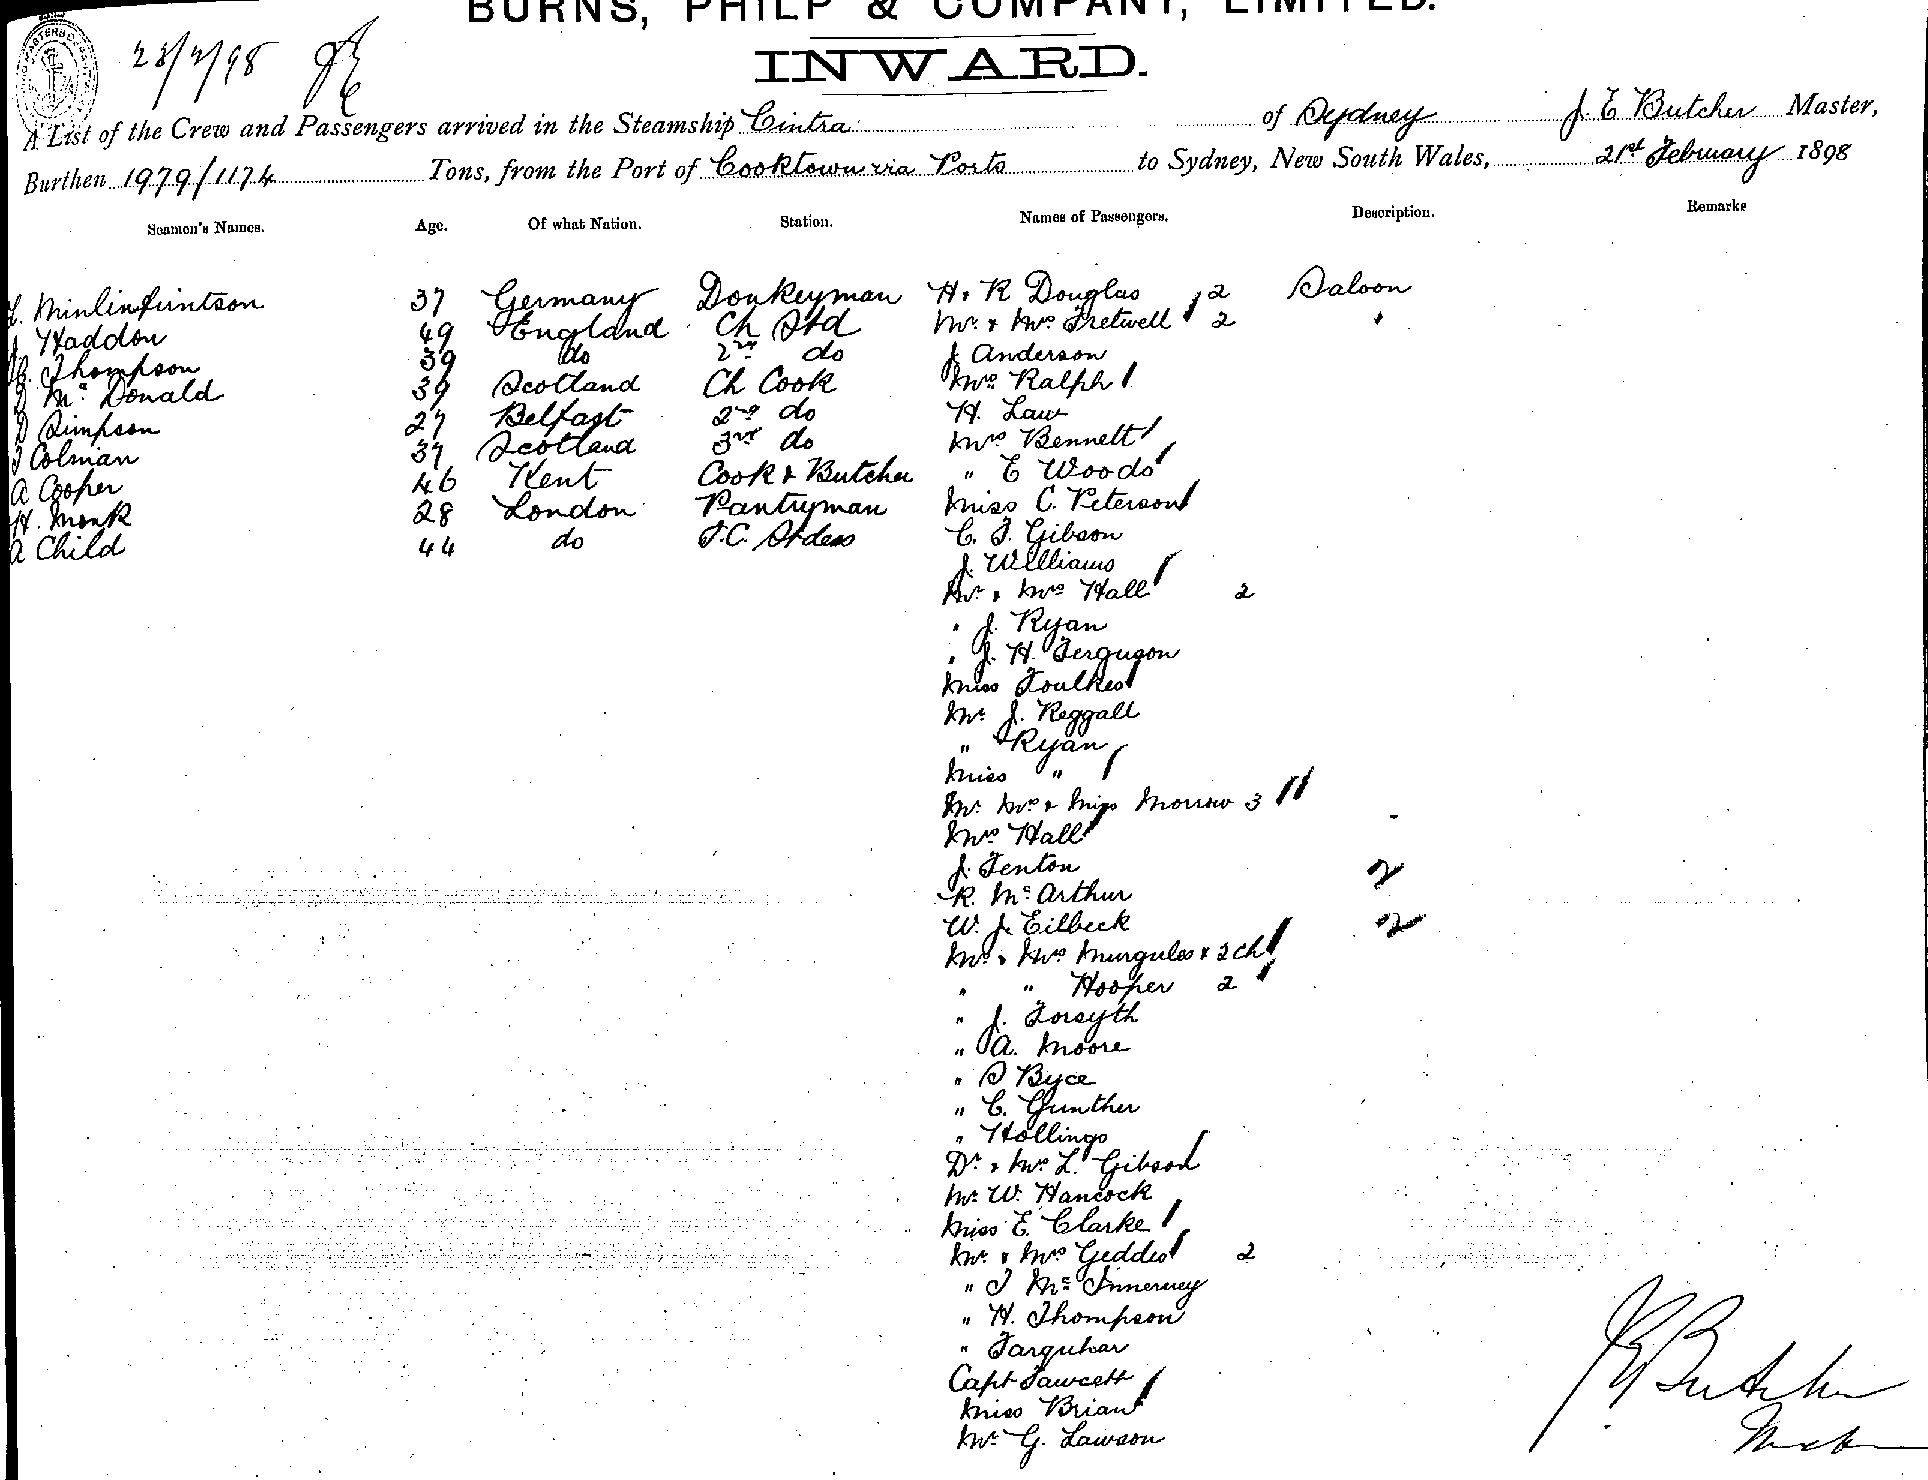 BURNS, PHILP & COMPANY, LIMITED.
INWARD.
23/2/98
A List of the Crew and Passengers arrived in the Steamship Cintra of Sydney J. E Butcher Master,
Burthen 1979/1174 Tons, from the Port of Cooktown via Ports to Sydney, New South Wales, 21st February 1898
Seamen's Names. Age. Of what Nation. Station. Names of Passengers. Description. Remarks
37 Germany Donkeyman H. R Douglas 2 Saloon
Haddon 49 England Ch Std Mr. & Mrs Fretwell 2 "
Thompson 39 do 2nd do J. Anderson
McDonald 39 Scotland Ch Cook Mrs Ralph
D Simpson 27 Belfast 2nd do H. Law
J Colman 37 Scotland 3rd do Mrs Bennett
A Cooper 46 Kent Cook & Butcher " E Woods
H. Monk 28 London Pantryman Miss C. Peterson
A Child 44 do F.C. Stdess C. F. Gibson
J. Williams
Mr. & Mrs Hall 2
" J. Ryan
" J. H. Ferguson
Miss Foulkes
Mr J. Reggall
" Ryan
Miss "
Mr. Mrs & Miss Morrow 3
Mrs Hall
J. Fenton 2
R. McArthur
W. J. Eilbeck 2
Mr. & Mrs Murgules & 2 ch
" " Hooper 2
" J. Forsyth
" A. Moore
" S Byce
" C. Gunther
" Hollings
Dr. & Mrs L. Gibson
Mr. W. Hancock
Miss E. Clarke
Mr. & Mrs Geddes 2
" J McInnerney
" H. Thompson
" Farquhar
Capt Fawcett
Miss Brian
Mr. G. Lawson
J E Butcher